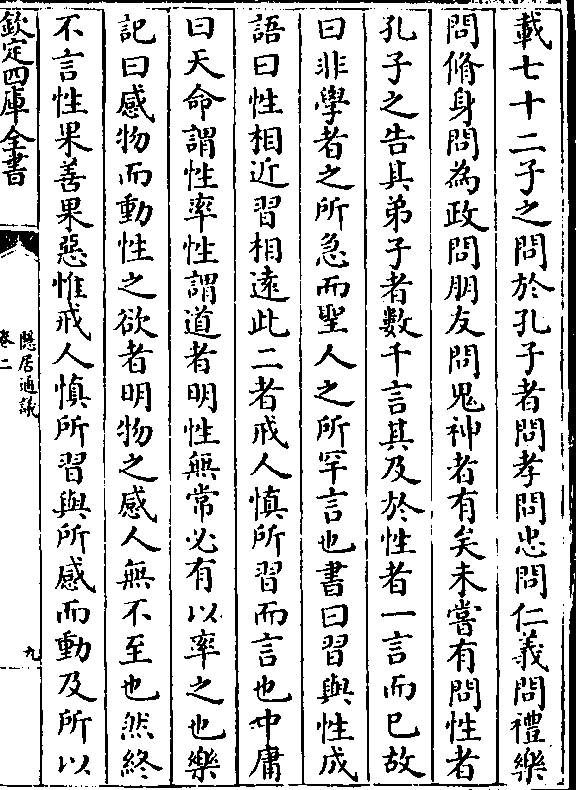 載七十二子之問於孔子者問孝問忠問仁義問禮樂
問脩身問為政問朋友問鬼神者有矣未嘗有問性者
孔子之告其弟子者數千言其及於性者一言而已故
曰非學者之所急而聖人之所罕言也書曰習與性成
語曰性相近習相逺此二者戒人慎所習而言也中庸
曰天命謂性率性謂道者明性無常必有以率之也樂
記曰感物而動性之欲者明物之感人無不至也然終
不言性果善果惡惟戒人慎所習與所感而動及所以
欽定四庫全書
隱居通議
卷二
九